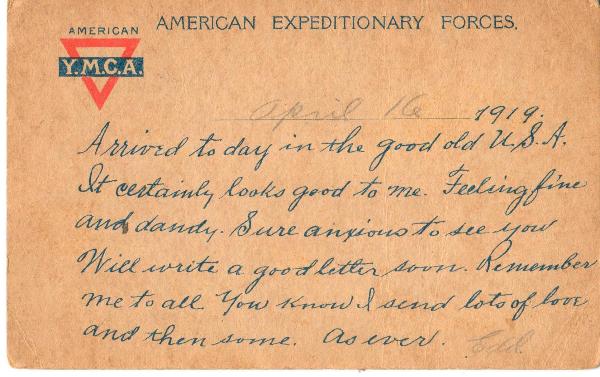 AMERICAN
Y.M.C.A.
AMERICAN EXPEDITIONARY FORCES.
April 16 1919.
Arrived to day in the good old U.S.A.
It certainly looks good to me. Feeling fine
and dandy. Sure anxious to see you
Will write a good letter soon. Remember
me to all You know I send lots of love
and then some. As ever.